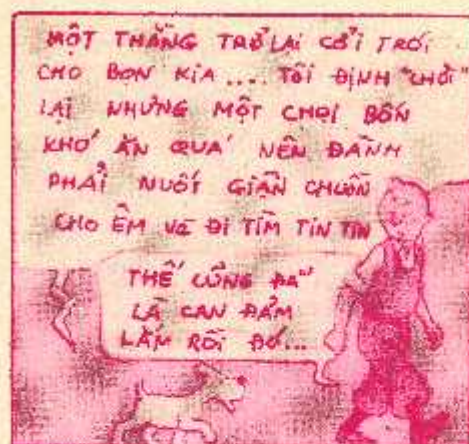 MỘT THẰNG TRỞ LẠI CỞI TRÓI
CHO BỌN KIA .... TÔI ĐỊNH "CHƠI"
LẠI NHƯNG MỘT CHỌI BỐN
KHÓ ĂN QUÁ NÊN ĐÀNH
PHẢI NUỐT GIẬN CHUỒN
CHO ÊM VÀ ĐI TÌM TIN TIN
THẾ CŨNG ĐÃ
LÀ CAN ĐẢM
LẮM RỒI ĐÓ...